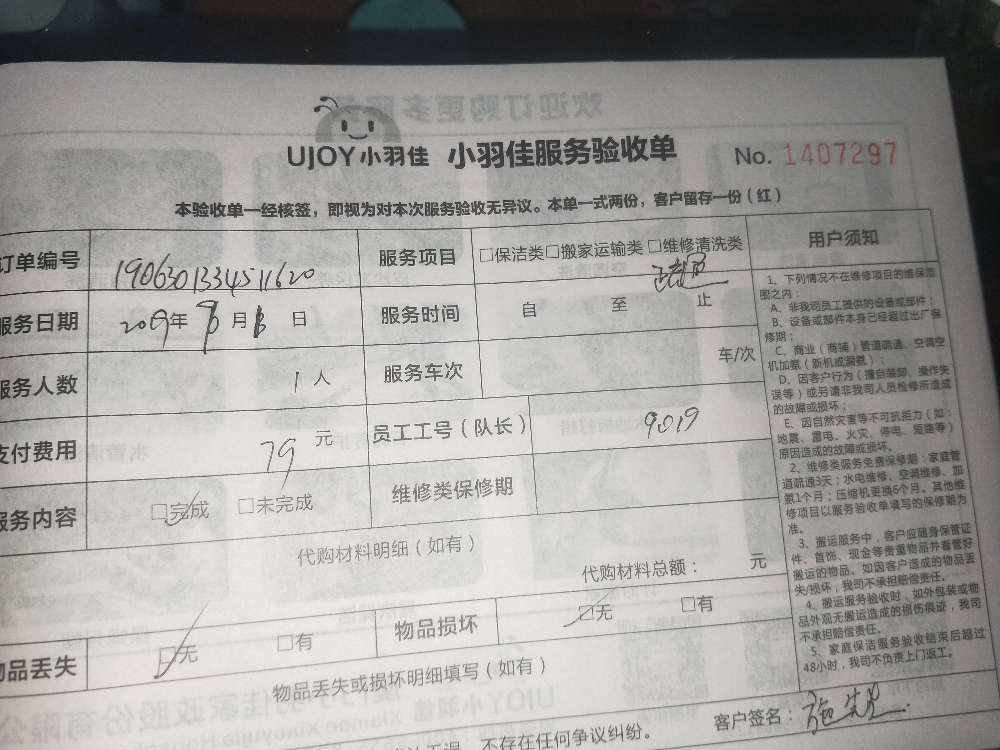 UJOY小羽佳 小羽佳服务验收单 No. 1407297
本验收单一经核签，即视为对本次服务验收无异议。本单一式两份，客户留存一份（红）
订单编号 1906301334511620 服务项目 □保洁类□搬家运输类 □维修清洗类
服务日期 2019年 月 日 服务时间 自 至 止
服务人数 1人 服务车次 车/次
支付费用 79 元 员工工号（队长） 9019
服务内容 □完成 □未完成 维修类保修期
代购材料明细（如有）
代购材料总额： 元
物品丢失 □无 □有 物品损坏 □无 □有
物品丢失或损坏明细填写（如有）
用户须知
1、下列情况不在维修项目的维保范
围之内：
A、非我司员工提供的设备或部件；
B、设备或部件本身已经超过出厂保
修期；
C、商业（商铺）管道疏通、空调空
机加氨（新机或漏氨）；
D、因客户行为（擅自装卸、操作失
误等）或另请非我司人员检修所造成
的故障或损坏；
E、因自然灾害等不可抗拒力（如：
地震、雷电、火灾、停电、短路等）
原因造成的故障或损坏。
2、维修类服务免费保修期：家庭管
道疏通3天；水电维修、空调维修、加
氨1个月；压缩机更换6个月。其他维
修项目以服务验收单填写的保修期为
准。
3、搬运服务中，客户应随身保管证
件、首饰、现金等贵重物品并看管好
搬运的物品。如因客户造成的物品丢
失/损坏，我司不承担赔偿责任。
4、搬运服务验收时，如外包装或物
品外观无搬运造成的损伤痕迹，我司
不承担赔偿责任。
5、家庭保洁服务验收结束后超过
48小时，我司不负责上门返工。
客户签名：施先生
不存在任何争议纠纷。